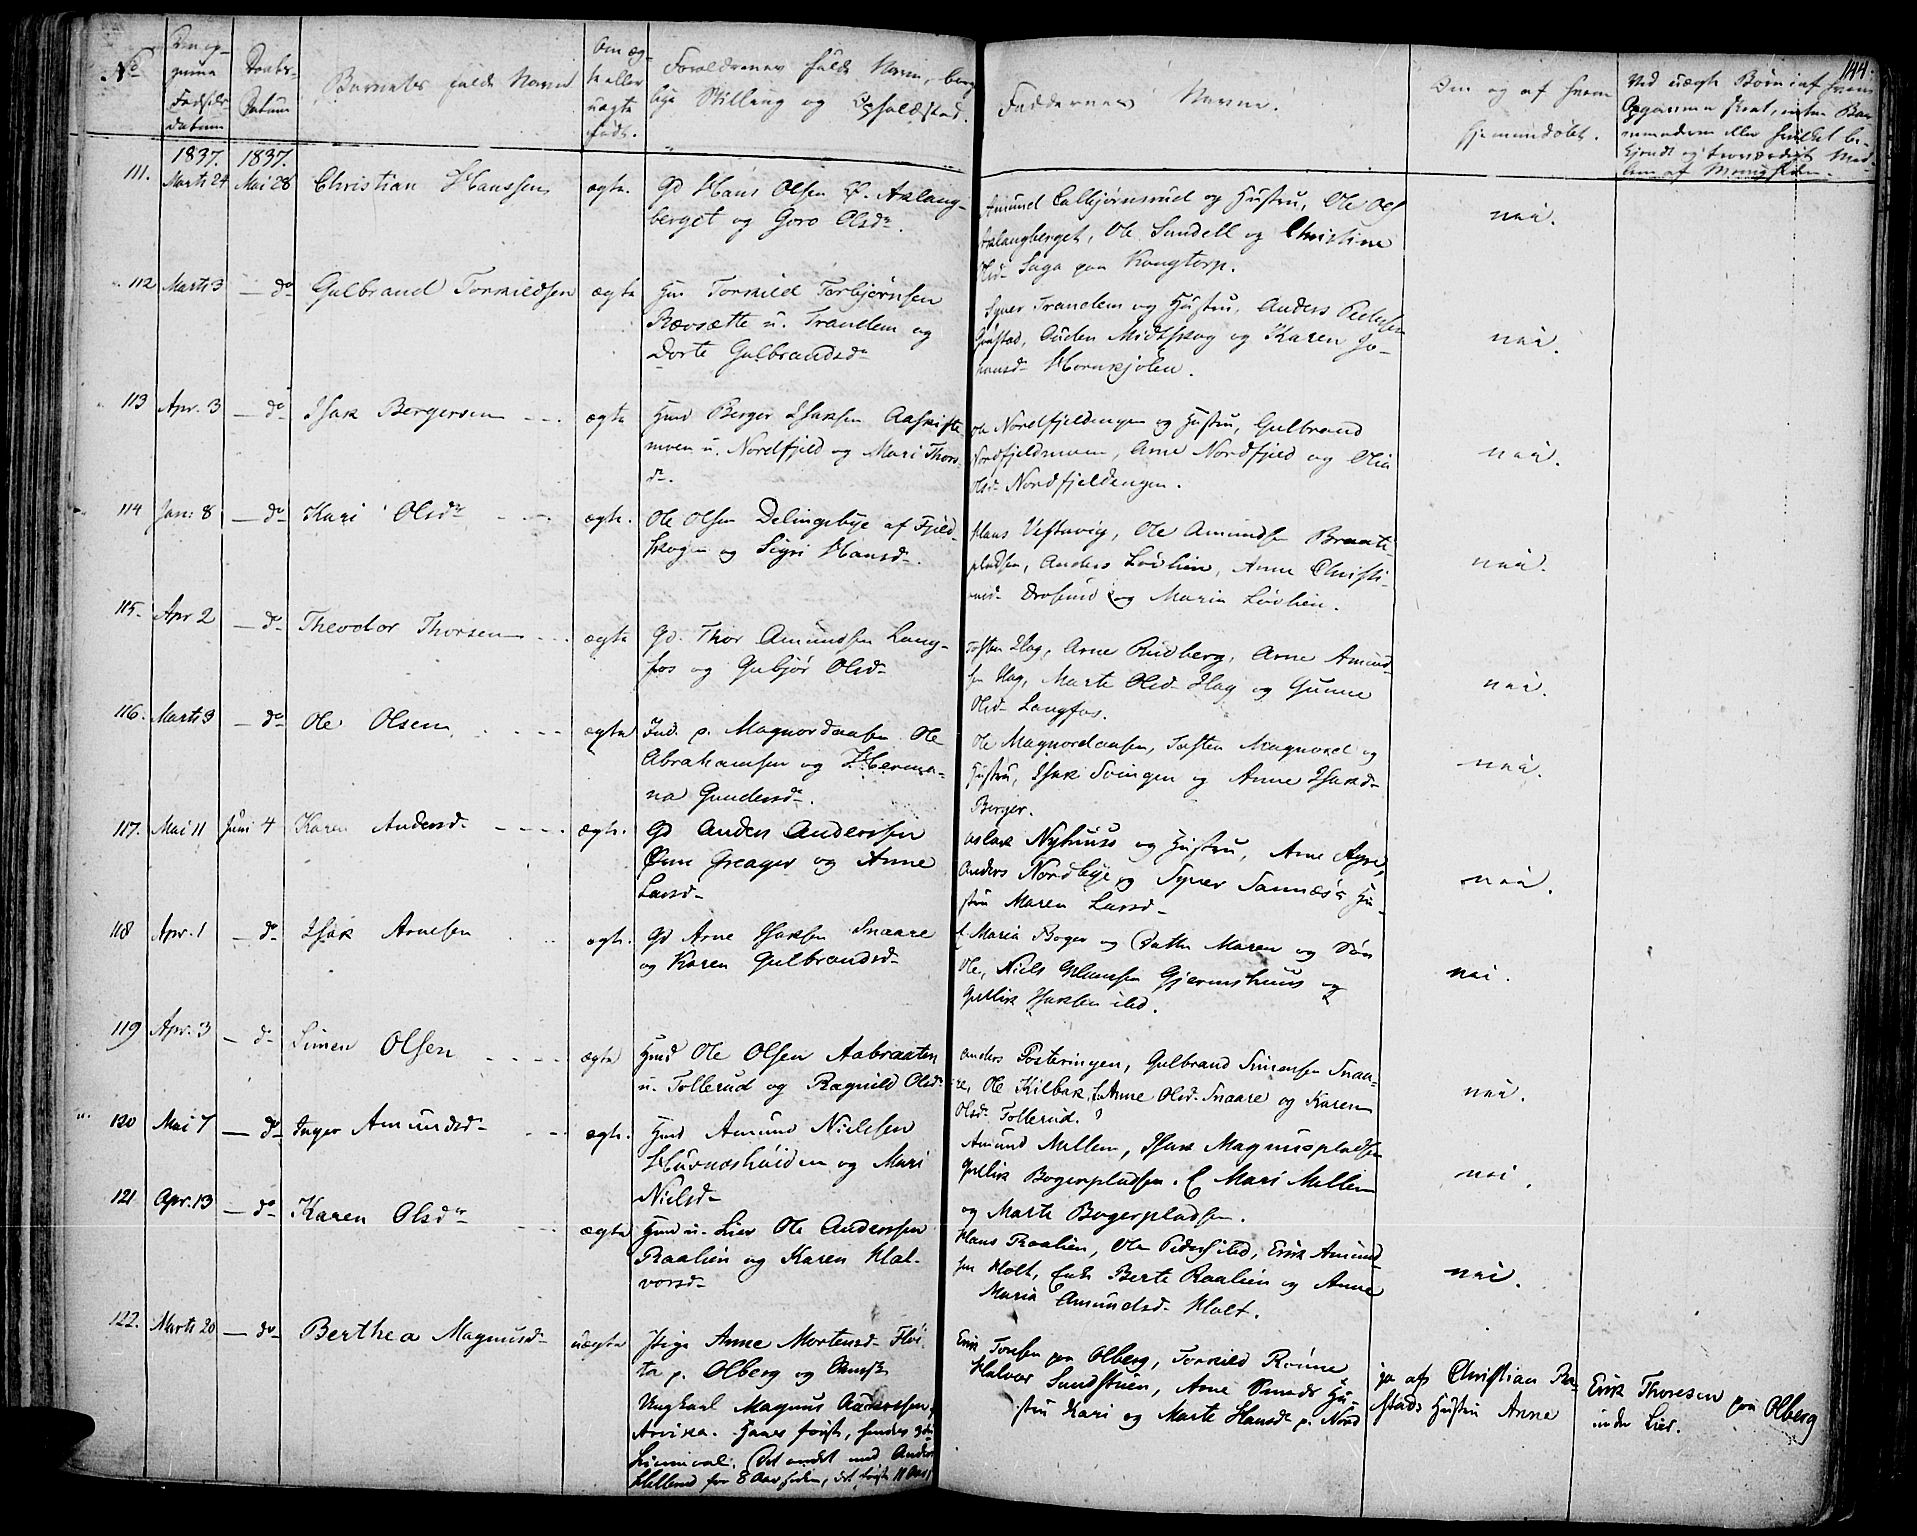 144.
No
Den op-
givne
Fødsels
datum
Daabs-
Datum
Barnets fulde Navn
Om æg-
te eller
uægte
født.
Forældrenes fulde Navn, borg
lige Stilling og Opholdsted.
Faddernes Navne.
Om og af hvem
hjemmedøbt.
Ved uægte Børn af hvem
1837. 1837.
111. Marts 24 Mai 28 Christian Hanssen ægte.
Gd Hans Olsen Ø. Aslang-
berget og Goro Olsdr.
Amund Calbjørnsrud og Hustru, Ole Ols
Aslangberget, Ole Sundell og Christine
Olsd Saga paa Kongtorp.
nei.
112 Marts 3 — do Gulbrand Torkildsen ægte
Hm Torkild Torbjørnsen
Rævsætte u. Trandem og
Dorte Gulbrandsdr
Syver Trandem og Hustru, Anders Pedersen
Grøstad, Auden Midtskog og Karen Jo-
hansd Hornkjølen.
nei.
113 Apr. 3 — do Isak Bergersen ægte
Hmd Berger Isaksen Aaskifte
moen u. Nordfjeld og Mari Thors
dr.
Ole Nordfjeldengen og Hustru, Gulbrand
Nordfjeldmoen, Arne Nordfjeld og Olia
Olsd Nordfjeldengen.
nei.
114 Jan: 8 — do Kari Olsdr ægte.
Ole Olsen Delingsbye af Fjeld
skogen og Sigri Hansd.
Hans Vestavig, Ole Amundsen Braate-
pladsen, Anders Løvlien, Anne Christi-
ansd Drosund og Maria Løvlien.
nei.
115. Apr 2 — do Theodor Thorsen ægte
Gd. Thor Amundsen Lang-
fos og Gubjør Olsd
Tosten Hag, Arne Rudberg, Arne Amund
sen Hag, Marte Olsd Hag og Gunne
Olsd Langfos.
nei.
116. Marts 9 — do Ole Olsen ægte
Ind. p. Magnordaasen Ole
Abrahamsen og Herma-
na Gundersd.
Ole Magnordaasen, Tosten Magnord og
Hustru, Isak Svingen og Anne Isaksd
Berger.
nei.
117. Mai 11 Juni 4 Karen Andersd ægte.
Gd Anders Anderssen
Øvre Greager og Anne
Larsd
Aslak Nyhuus og Hustru, Arne Agre,
Anders Nordbye og Syver Sannæs's Hu-
stru Maren Larsd
nei.
118 Apr. 1 — do Isak Arnesen ægte.
Gd Arne Isaksen Snaare
og Karen Gulbrandsd
E Maria Boger og Datter Maren og Søn
Ole, Niels Hansen Gjermshuus og
Gullik Isaksen ibd.
nei.
119 Apr. 3 — do Simen Olsen ægte
Hmd Ole Olsen Aabraaten
u. Tollerud og Ragnild Olsd
Anders Posteringen, Gulbrand Simensen Snaa-
re, Ole Kilbak, Anne Olsd Snaare og Karen
Olsd Tollerud.
nei.
120 Mai 7 — do Inger Amundsd ægte.
Hmd Amund Nielssen
Huvnæshøiden og Mari
Nielsd
Amund Mellem, Isak Magnuspladsen
Gullik Bogerpladsen. E Mari Mellem
og Marte Bogerpladsen.
nei.
121 Apr. 13 — do Karen Olsdr ægte
Hmd u. Lier Ole Anderssen
Raalien og Karen Hal-
vorsd
Hans Raalien, Ole Peders ibd, Erik Amund
sen Holt, Enk. Berte Raalien og Anne
Maria Amundsd Holt.
nei.
122. Marts 20 — do Berthea Magnusd uægte
Pige Anne Mortensd Flöi
ta p. Olberg og
Ungkarl Magnus Anderssen
Arvika. Hans første, hendes 3die
Leiermaal. Det andet med Anders
Hellerud for 8 Aar siden, det første 11 Aar
Erik Torsen paa Olberg, Torkild Rønne
Halvor Sundstuen, Arne Smeds Hu-
stru Kari og Marte Hansd p. Nord
ja af Christian Ra-
stads Hustru Anne
Erik Thoresen paa Olberg
under Lier.